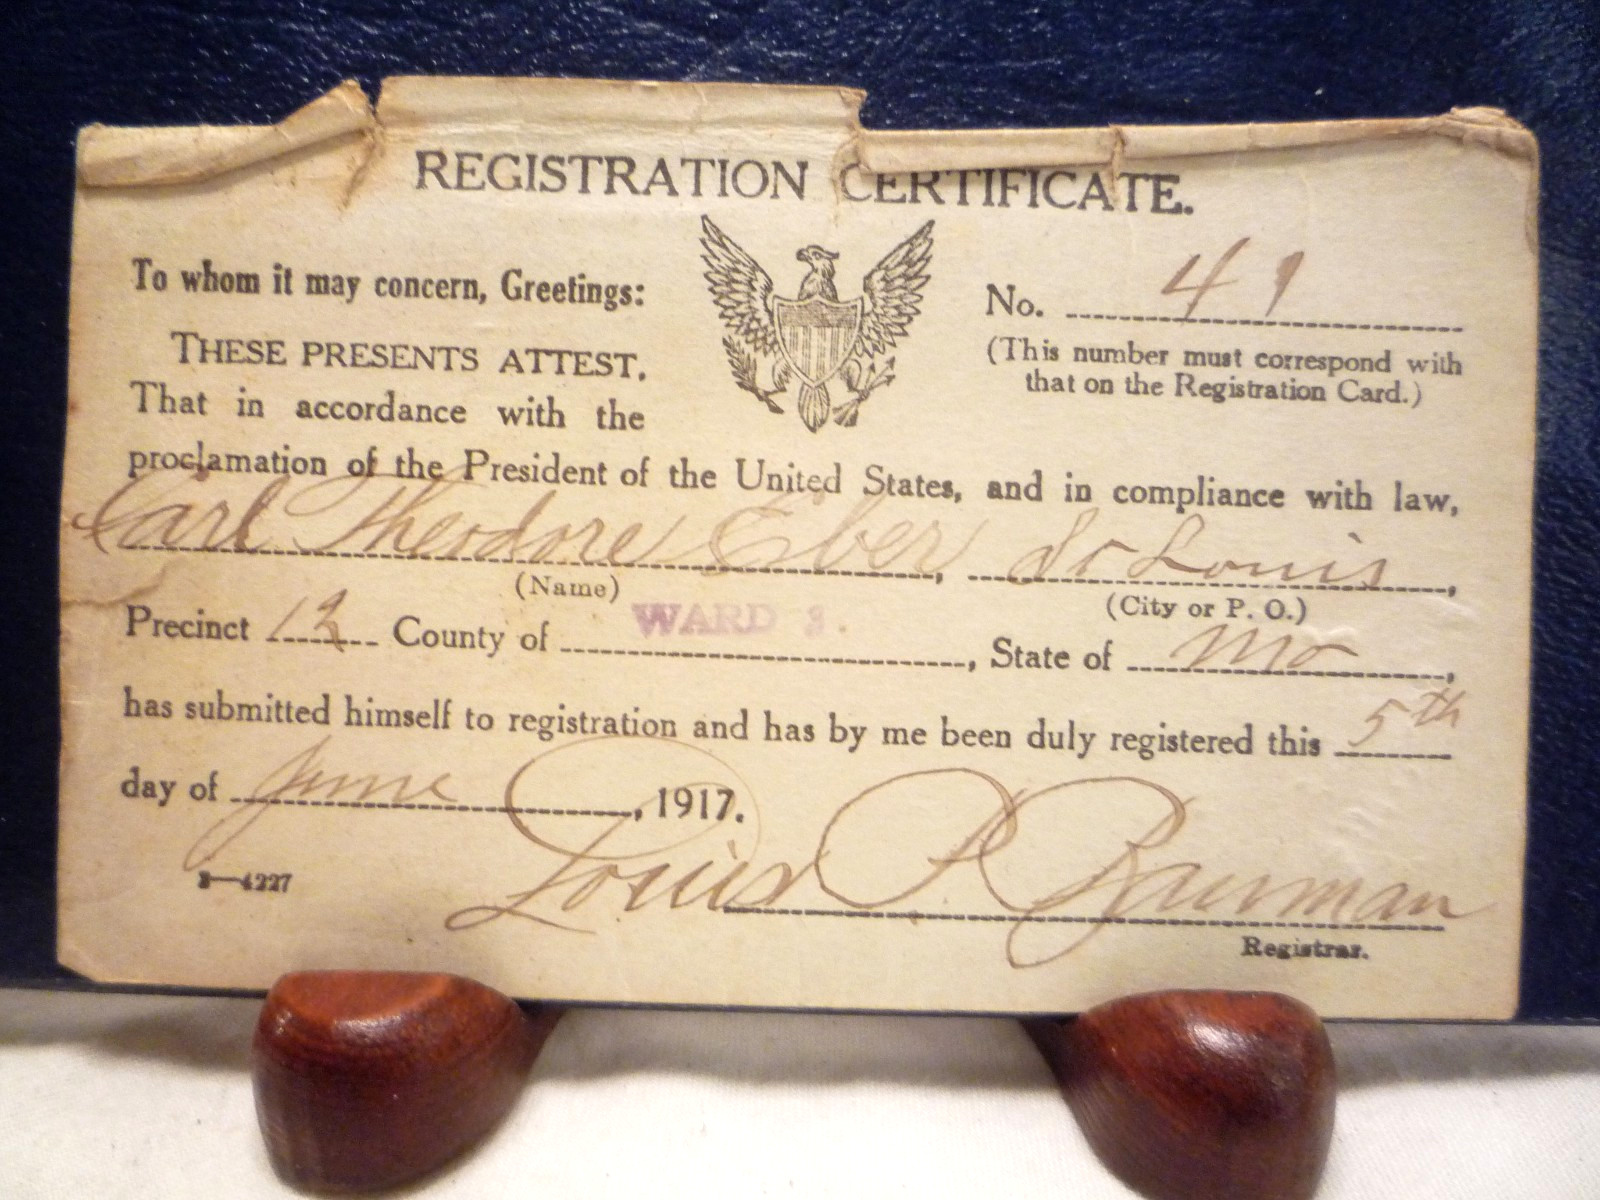 REGISTRATION CERTIFICATE.
To whom it may concern, Greetings:
No. 49
THESE PRESENTS ATTEST,
(This number must correspond with
that on the Registration Card.)
That in accordance with the
proclamation of the President of the United States, and in compliance with law,
Carl Theodore Eber, St Louis,
(Name) (City or P. O.)
Precinct 12 County of WARD 3. , State of Mo,
has submitted himself to registration and has by me been duly registered this 5th
day of June, 1917.
3—4227
Louis P Bauman
Registrar.